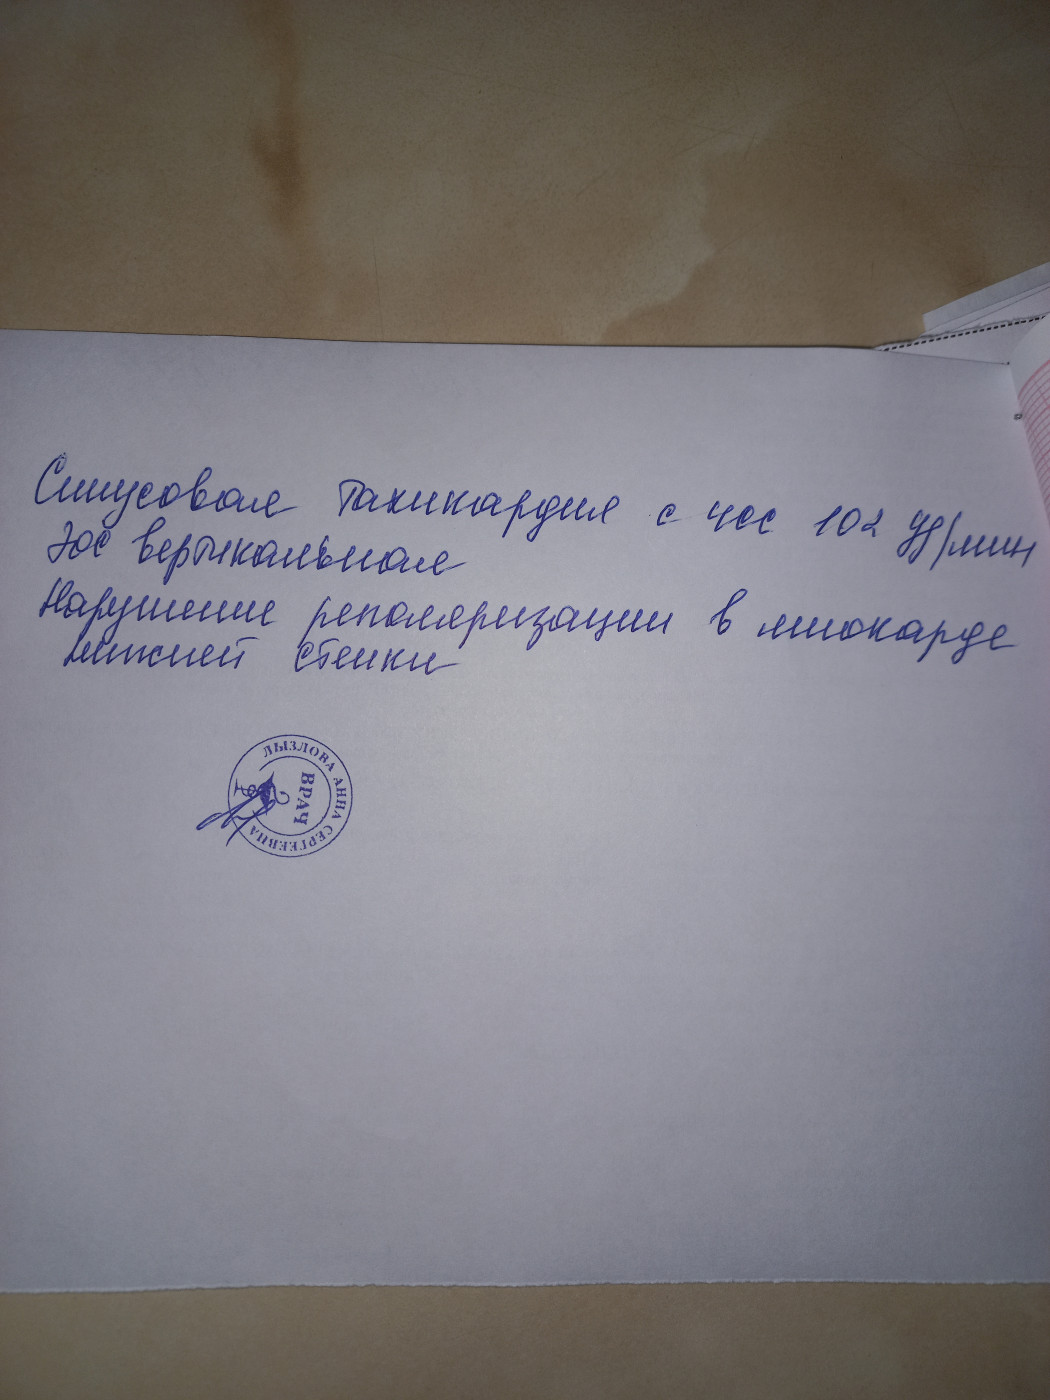 Синусовая тахикардия с ЧСС 102 уд/мин
ЭОС вертикальная
Нарушение реполяризации в миокарде
нижней стенки
ЛЫЗЛОВА АННА СЕРГЕЕВНА
ВРАЧ